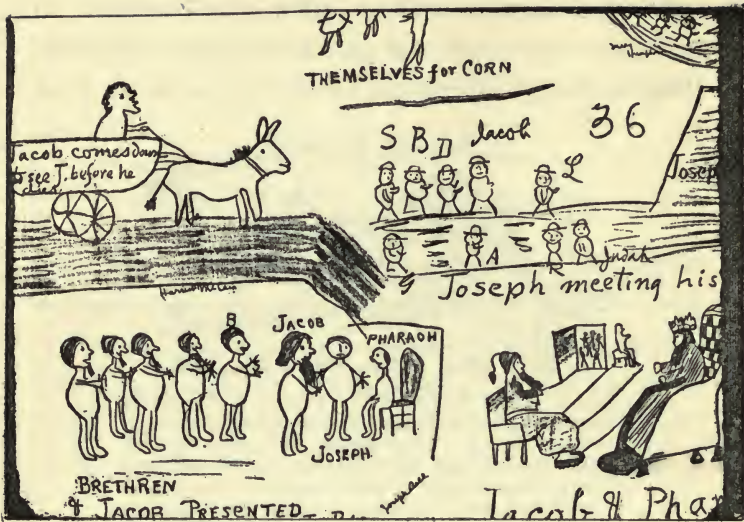 THEMSELVES for CORN
Jacob comes down
to see J. before he
dies
S B D Jacob 36
L
Josep
A
Judah
Joseph meeting his
B
JACOB
PHARAOH
JOSEPH
BRETHREN
& JACOB PRESENTED
Jacob & Phar